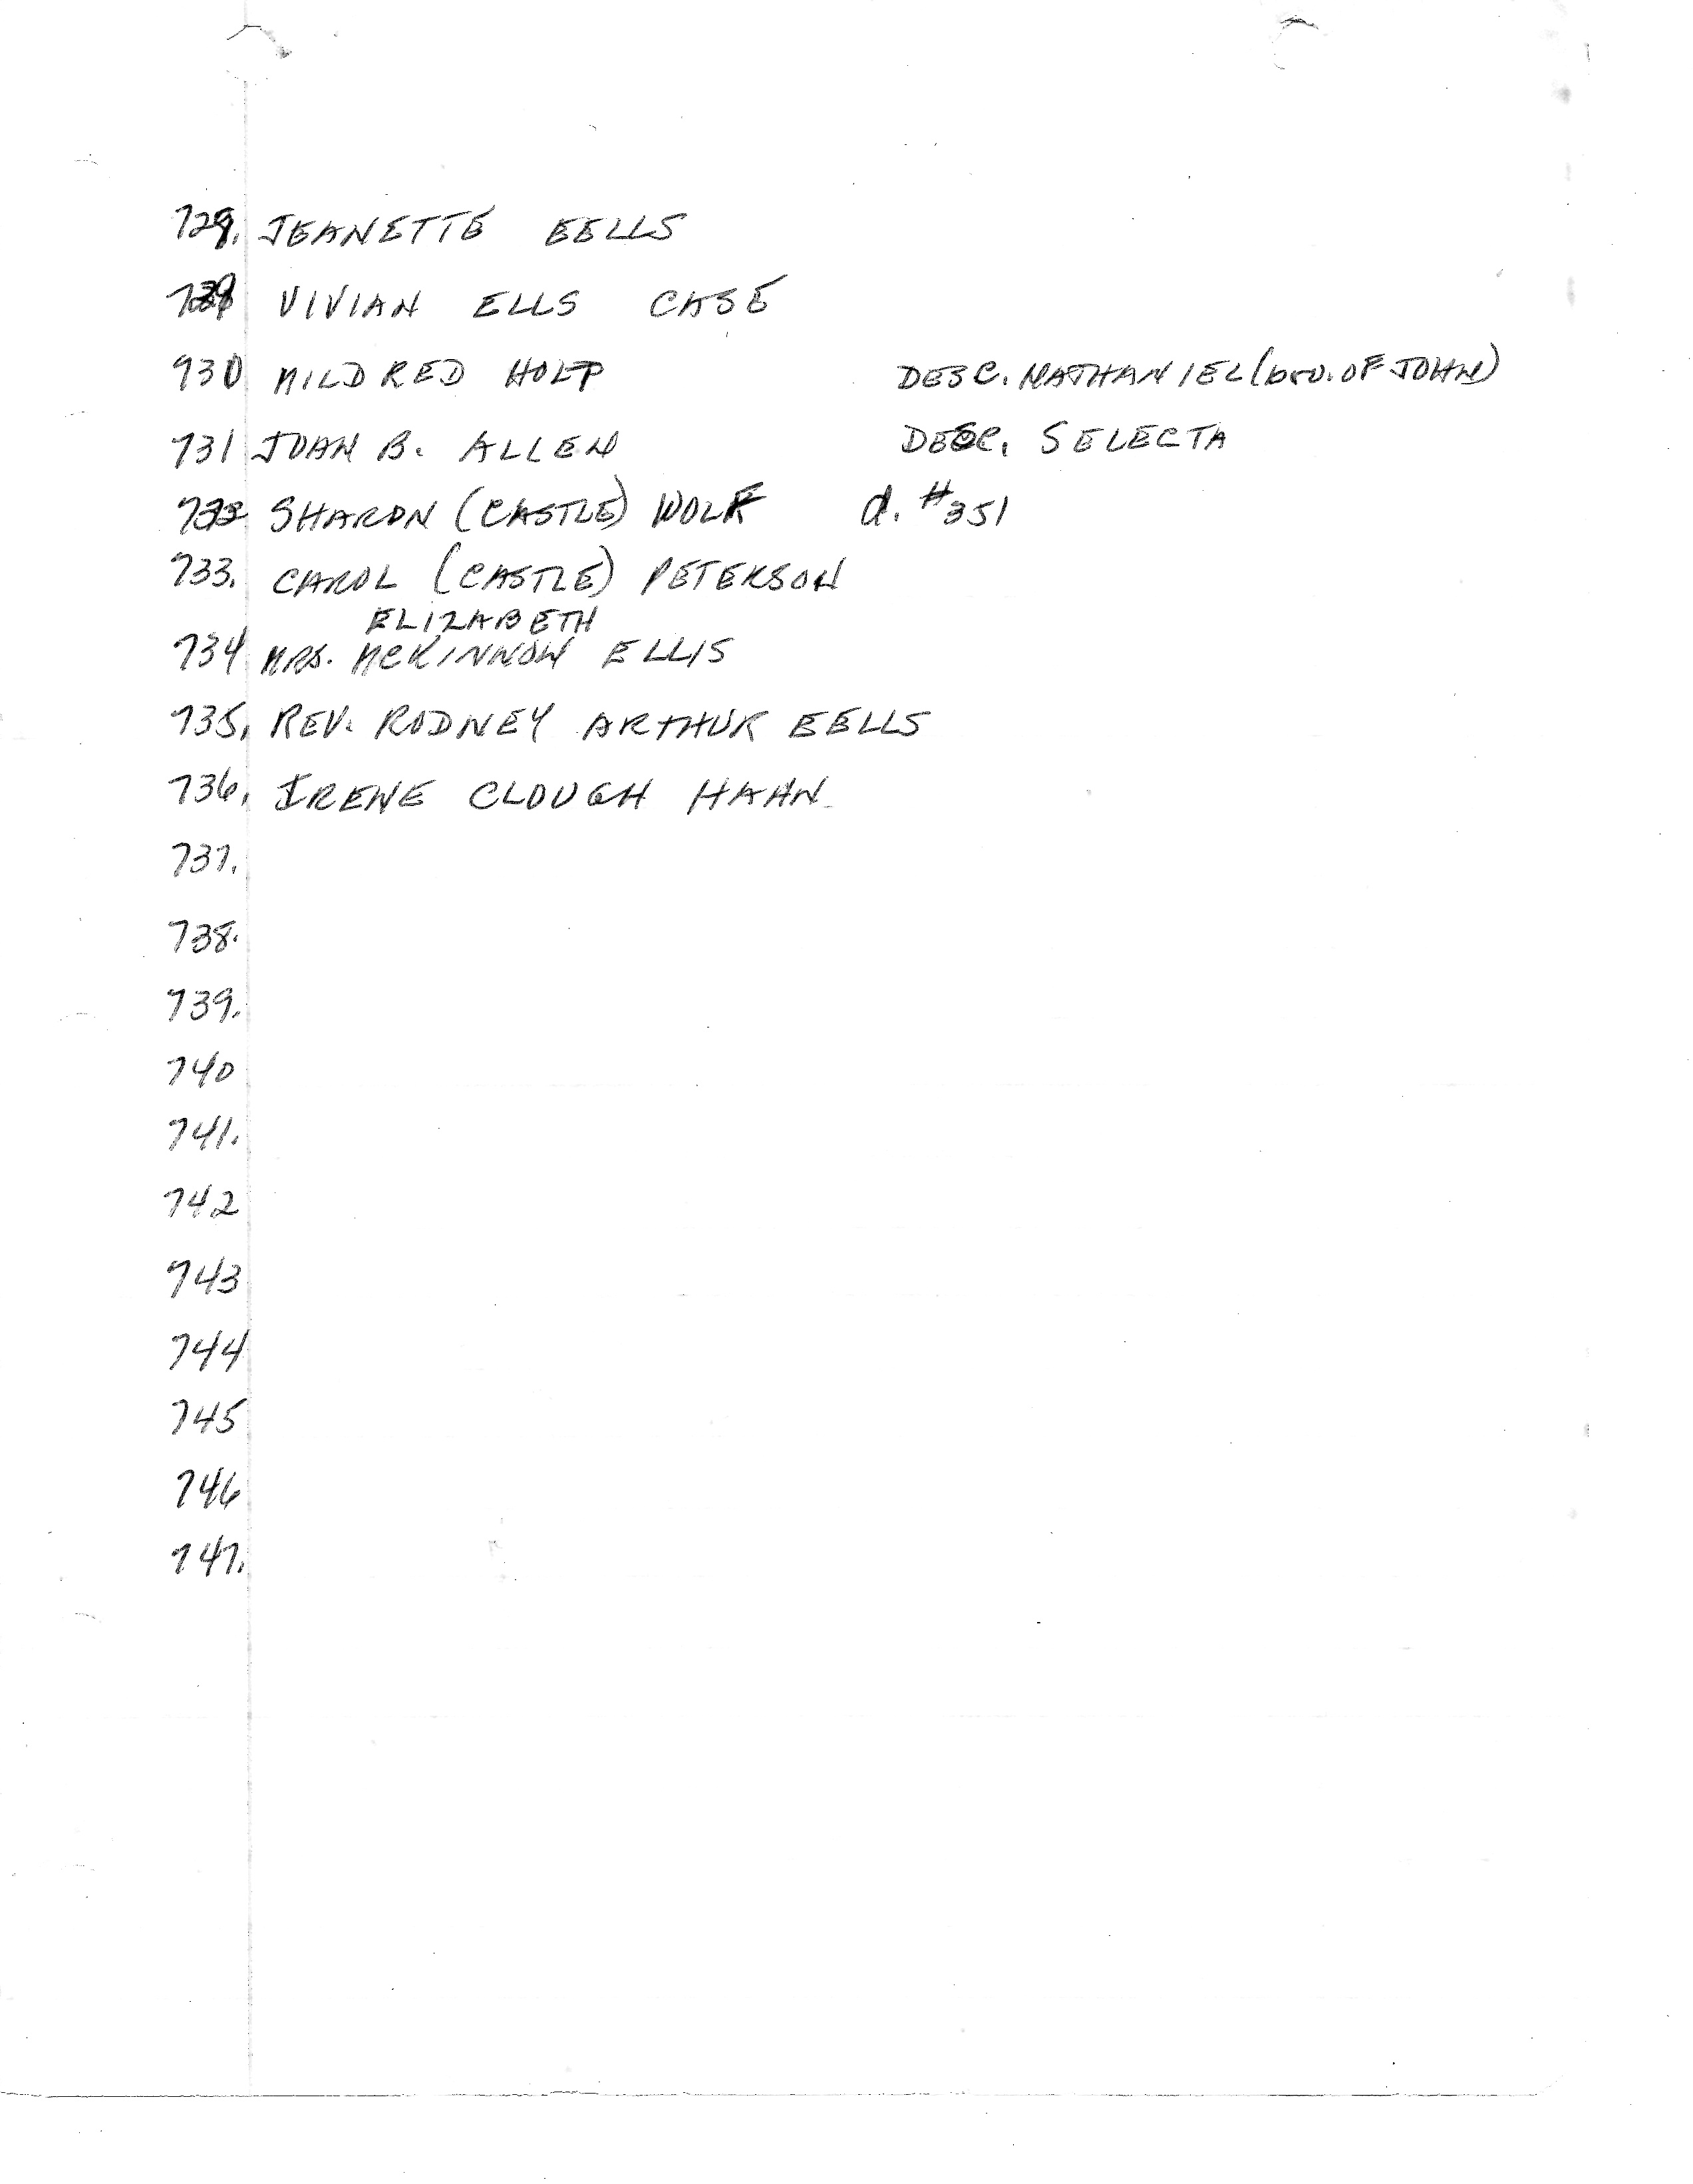 728. JEANETTE EELLS
729 VIVIAN ELLS CASE
930 MILDRED HOLT DESC. NATHANIEL (bro. OF JOHN)
731 JOAN B. ALLEN DESC. SELECTA
732 SHARON (CASTLE) WOLF d. #351
733. CAROL (CASTLE) PETERSON
ELIZABETH
734 MRS. MCKINNON ELLIS
735. REV. RODNEY ARTHUR EELLS
736. IRENE CLOUGH HAHN
737.
738.
739.
740
741.
742
743
744
745
746
747.